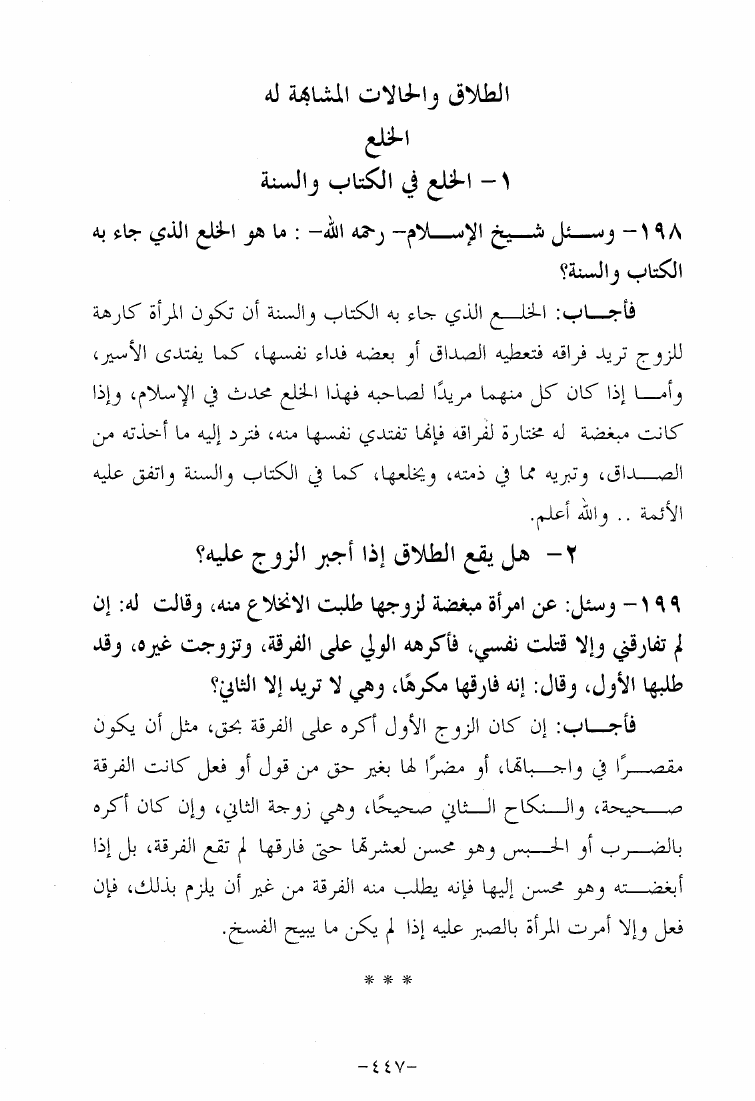 الطلاق والحالات المشابهة له
الخلع
١- الخلع في الكتاب والسنة
١٩٨- وسئل شيخ الإسلام- رحمه الله- : ما هو الخلع الذي جاء به
الكتاب والسنة؟
فأجاب: الخلع الذي جاء به الكتاب والسنة أن تكون المرأة كارهة
للزوج تريد فراقه فتعطيه الصداق أو بعضه فداء نفسها، كما يفتدى الأسير،
وأما إذا كان كل منهما مريدًا لصاحبه فهذا الخلع محدث في الإسلام، وإذا
كانت مبغضة له مختارة لفراقه فإنها تفتدي نفسها منه، فترد إليه ما أخذته من
الصداق، وتبريه مما في ذمته، ويخلعها، كما في الكتاب والسنة واتفق عليه
الأئمة .. والله أعلم.
٢- هل يقع الطلاق إذا أجبر الزوج عليه؟
١٩٩- وسئل: عن امرأة مبغضة لزوجها طلبت الانخلاع منه، وقالت له: إن
لم تفارقني وإلا قتلت نفسي، فأكرهه الولي على الفرقة، وتزوجت غيره، وقد
طلبها الأول، وقال: إنه فارقها مكرهًا، وهي لا تريد إلا الثاني؟
فأجاب: إن كان الزوج الأول أكره على الفرقة بحق، مثل أن يكون
مقصرًا في واجباتها، أو مضرًا لها بغير حق من قول أو فعل كانت الفرقة
صحيحة، والنكاح الثاني صحيحًا، وهي زوجة الثاني، وإن كان أكره
بالضرب أو الحبس وهو محسن لعشرتها حتى فارقها لم تقع الفرقة، بل إذا
أبغضته وهو محسن إليها فإنه يطلب منه الفرقة من غير أن يلزم بذلك، فإن
فعل وإلا أمرت المرأة بالصبر عليه إذا لم يكن ما يبيح الفسخ.
* * *
-٤٤٧-